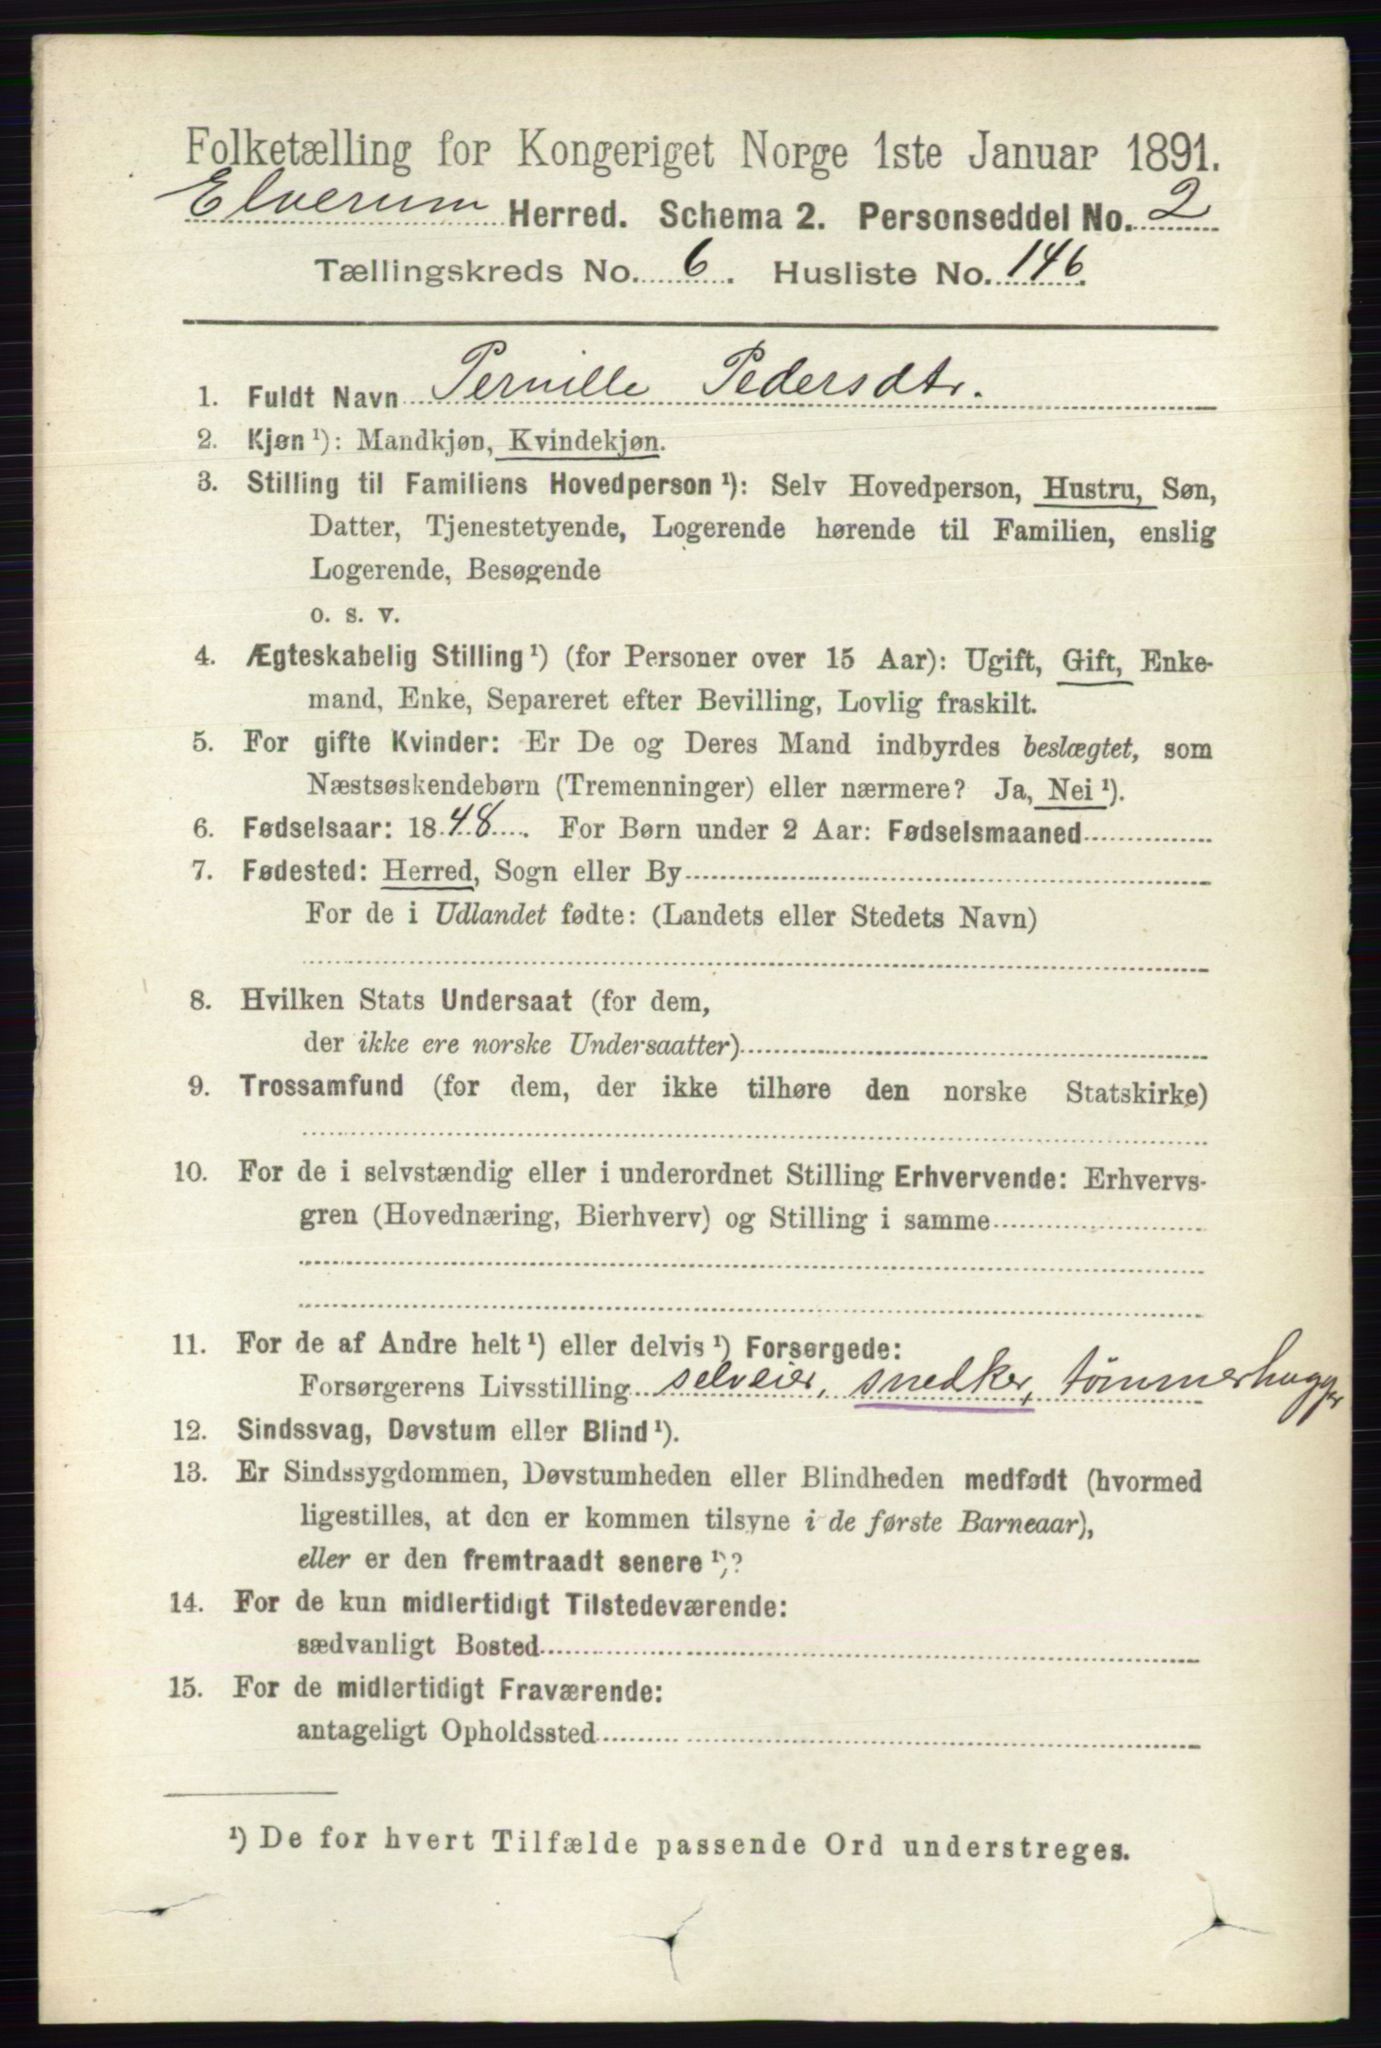 Folketælling for Kongeriget Norge 1ste Januar 1891.
Elverum Herred. Schema 2. Personseddel No. 2
Tællingskreds No. 6. Husliste No. 146.
1. Fuldt Navn Pernille Pedersdtr.
2. Kjøn ¹): Mandkjøn, Kvindekjøn.
3. Stilling til Familiens Hovedperson ¹): Selv Hovedperson, Hustru, Søn,
Datter, Tjenestetyende, Logerende hørende til Familien, enslig
Logerende, Besøgende
o. s. v.
4. Ægteskabelig Stilling ¹) (for Personer over 15 Aar): Ugift, Gift, Enke-
mand, Enke, Separeret efter Bevilling, Lovlig fraskilt.
5. For gifte Kvinder: Er De og Deres Mand indbyrdes beslægtet, som
Næstsøskendebørn (Tremenninger) eller nærmere? Ja, Nei ¹).
6. Fødselsaar: 1848. For Børn under 2 Aar: Fødselsmaaned
7. Fødested: Herred, Sogn eller By
For de i Udlandet fødte: (Landets eller Stedets Navn)
8. Hvilken Stats Undersaat (for dem,
der ikke ere norske Undersaatter)
9. Trossamfund (for dem, der ikke tilhøre den norske Statskirke)
10. For de i selvstændig eller i underordnet Stilling Erhvervende: Erhvervs-
gren (Hovednæring, Bierhverv) og Stilling i samme
11. For de af Andre helt ¹) eller delvis ¹) Forsørgede:
Forsørgerens Livsstilling selveier, snedker, tömmerhugger
12. Sindssvag, Døvstum eller Blind ¹).
13. Er Sindssygdommen, Døvstumheden eller Blindheden medfødt (hvormed
ligestilles, at den er kommen tilsyne i de første Barneaar),
eller er den fremtraadt senere ¹)?
14. For de kun midlertidigt Tilstedeværende:
sædvanligt Bosted
15. For de midlertidigt Fraværende:
antageligt Opholdssted
¹) De for hvert Tilfælde passende Ord understreges.